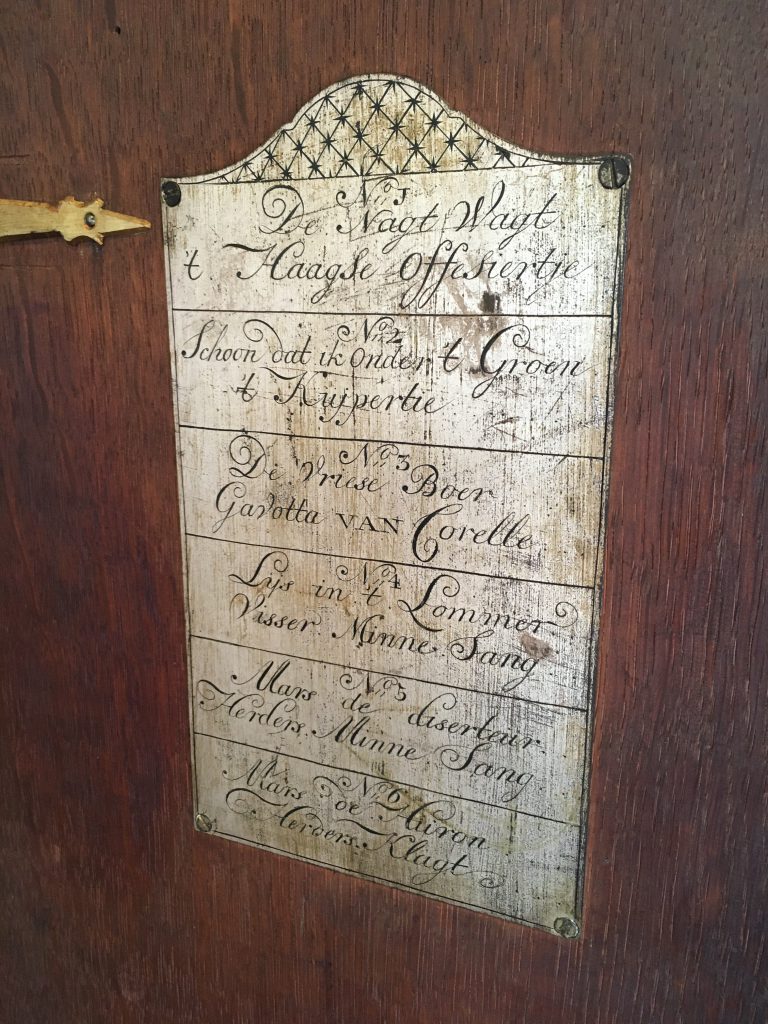 No. 1
De Nagt Wagt
't Haagse Offesiertje
No. 2
Schoon dat ik onder 't Groen
't Kuypertie
No. 3
De Vriese Boer
Gavotta VAN Corelle
No. 4
Lys in 't Lommer
Visser Minne Sang
No. 5
Mars de diserteur
Herders Minne Sang
No. 6
Mars Huron
Herders Klagt